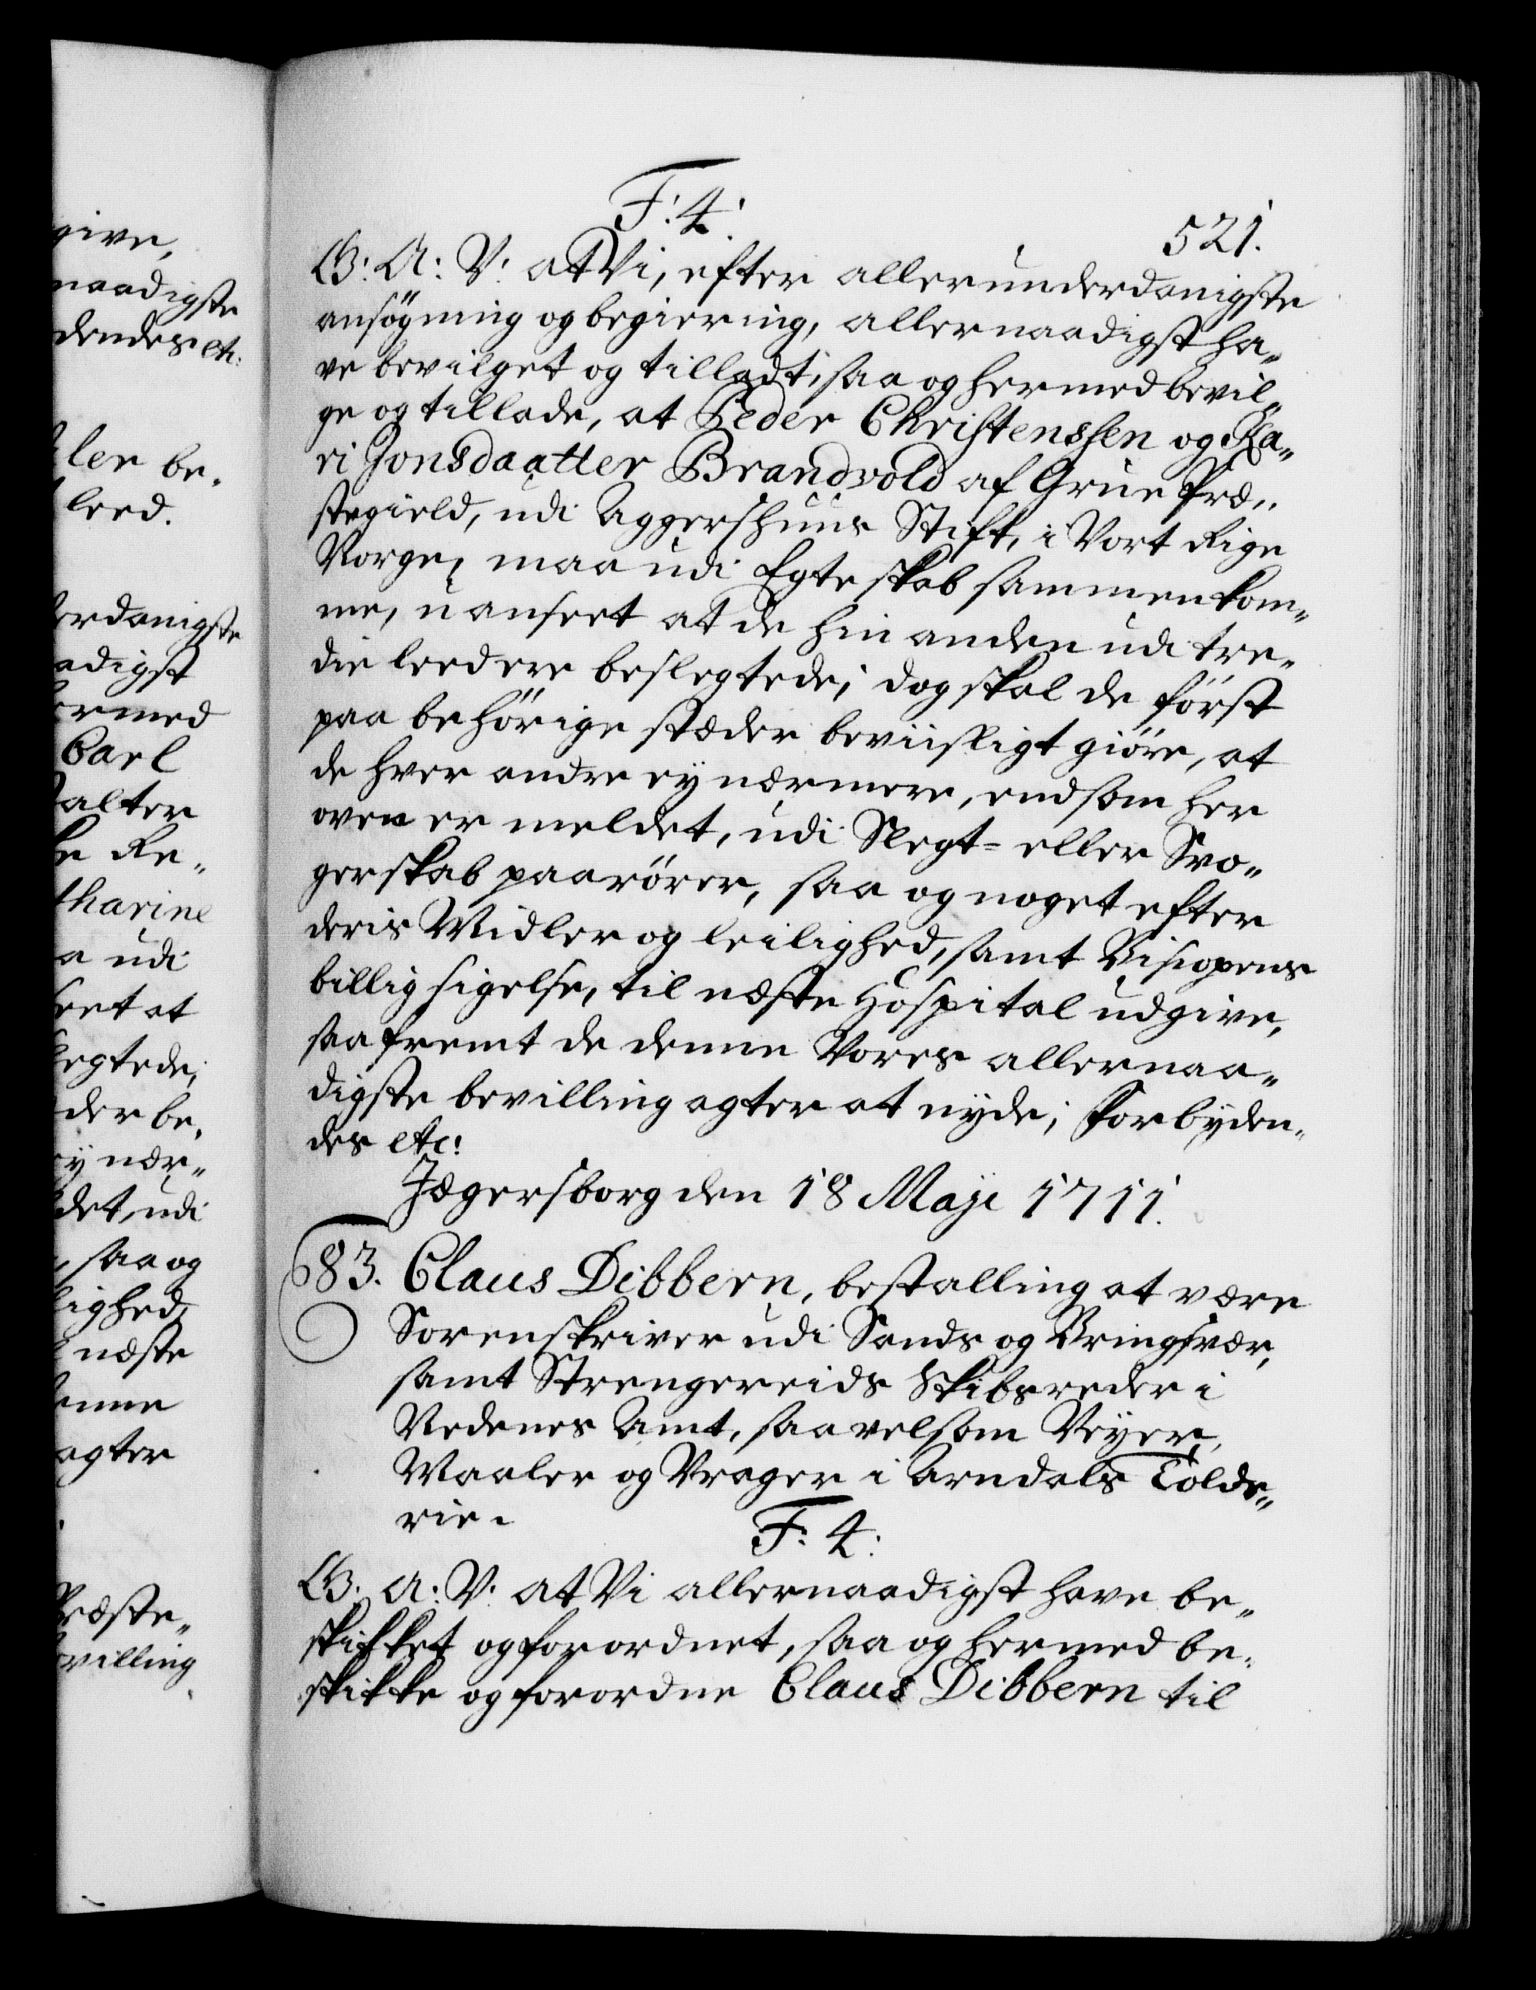 give,
naadigste
dendes etc:
ler be„
leed.
erdanigste
adigst
ermed
Carl
alter
Re„
tharine
a udi
seet at
legtede;
der be„
ey nær„
det, udi
, saa og
lighed,
næste
enne
agter
Præste„
villing
F: 4:
521.
G: A: V: at Vi, efter allerunderdanigste
ansøgning og begiering, allernaadigst ha„
ve bevilget og tilladt, saa og hermed bevil„
ge og tillade, at Peder Christenssen og Ka„
ri Jonsdaatter Brandvold af Grue Præ„
stegield, udi Aggershuus Stift, i Vort Rige
Norge, maa udi Egteskab sammenkom„
me, uanseet at de hin anden udi tre„
die leed ere beslegtede; dog skal de først
paa behørige stæder beviisligt giøre, at
de hver andre ey nærmere, end som her
oven er meldet, udi Slegt- eller Svo„
gerskab paarører, saa og noget efter
deris Midler og leilighed, samt Bisopens
billig sigelse, til næste Hospital udgive,
saafremt de denne Vores allernaa„
digste bevilling agter at nyde; Forbyden„
des etc:
Jægersborg den 18 Maji 1711.
83. Claus Dibbern, bestalling at være
Sorenskriver udi Sands og Bringsvær,
samt Strengereids Skibsreder i
Nedenes Amt, saavelsom Veyer,
Maaler og Vrager i Arndals Tolde„
rie.
F: 4:
G: A: V: at Vi allernaadigst have be„
skikket og forordnet, saa og hermed be„
skikke og forordne Claus Dibbern til